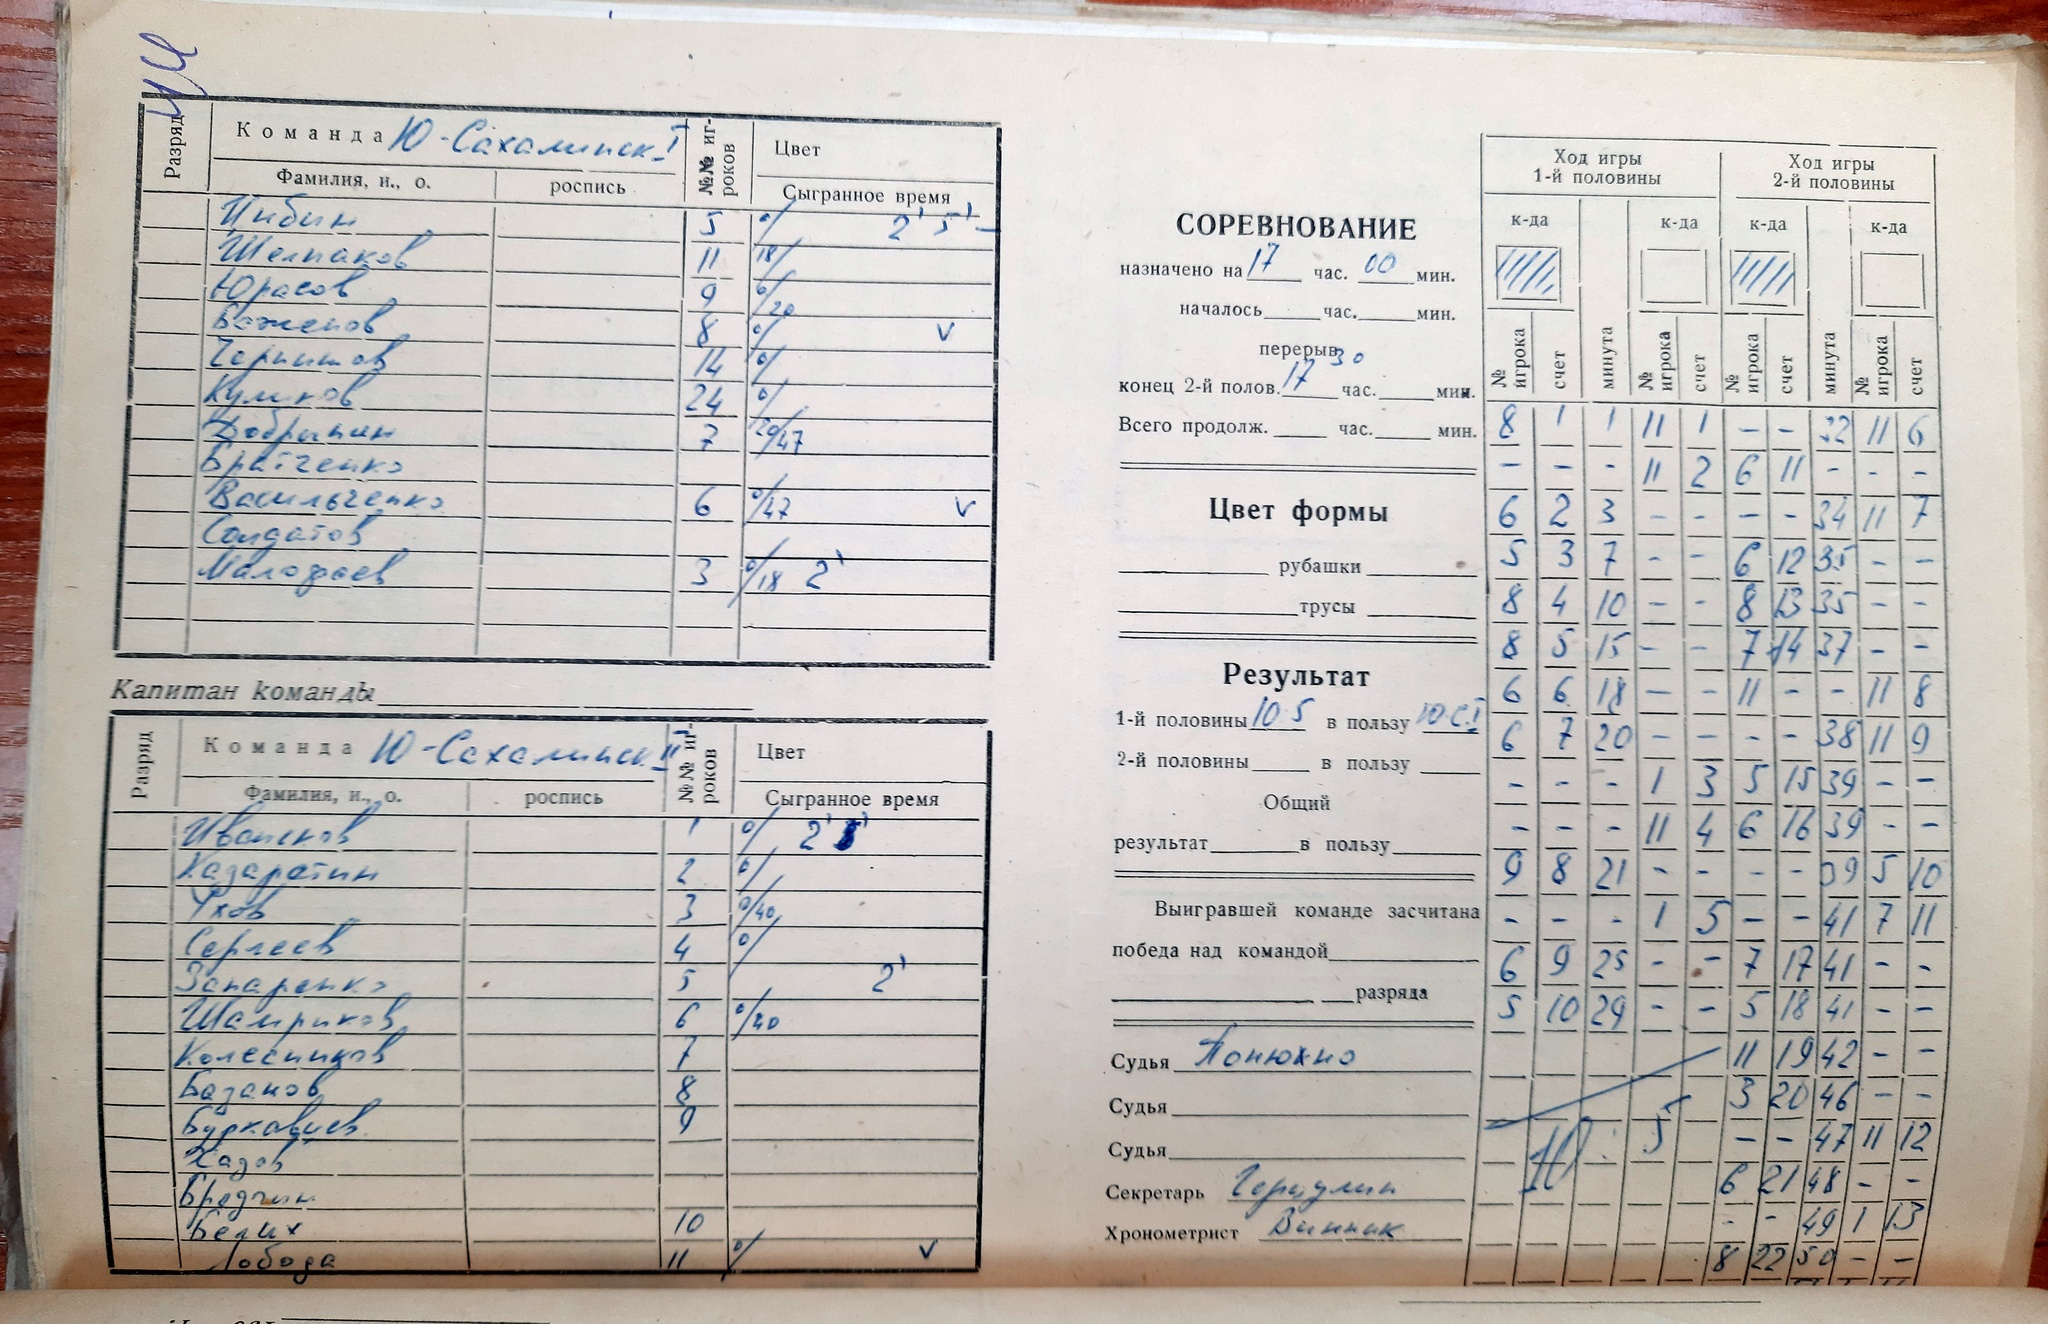 Разряд
Команда Ю-Сахалинск-I
№№ игроков
Цвет
Фамилия, и., о. роспись Сыгранное время
Цибин 5 0/ 2' 5'
Шелпаков 11 18/
Юрасов 9 0/20
Баженов 8 0/ V
14 0/
Куликов 24 0/
Добрынин 7 20/47
Братченко
Васильченко 6 0/47 V
Солдатов
Малофеев 3 0/18 2'
Капитан команды
Разряд
Команда Ю-Сахалинск II
№№ игроков
Цвет
Фамилия, и., о. роспись Сыгранное время
Иваськов 1 0/ 2'
Казаратин 2 0/
Ухов 3 0/40
Сергеев 4 0/
Запаренко 5 2'
Шамриков 6 0/40
Колесников 7
Базанов 8
9
Хазов
Бредгин
Белих 10
Лобода 11 0/ V
СОРЕВНОВАНИЕ
назначено на 17 час. 00 мин.
началось час. мин.
перерыв
конец 2-й полов. 17 30 час. мин.
Всего продолж. час. мин.
Цвет формы
рубашки
трусы
Результат
1-й половины 10:5 в пользу Ю-С.I
2-й половины в пользу
Общий
результат в пользу
Выигравшей команде засчитана
победа над командой
разряда
Судья Панюхно
Судья
Судья
Секретарь
Хронометрист Винник
Ход игры 1-й половины
Ход игры 2-й половины
к-да к-да к-да к-да
№ игрока счет минута № игрока счет № игрока счет минута № игрока счет
8 1 1 11 1 – – 32 11 6
– – – 11 2 6 11 – – –
6 2 3 – – – – 34 11 7
5 3 7 – – 6 12 35 – –
8 4 10 – – 8 13 35 – –
8 5 15 – – 7 14 37 – –
6 6 18 – – 11 – – 11 8
6 7 20 – – – – 38 11 9
– – – 1 3 5 15 39 – –
– – – 11 4 6 16 39 – –
9 8 21 – – – – 39 5 10
– – – 1 5 – – 41 7 11
6 9 25 – – 7 17 41 – –
5 10 29 – – 5 18 41 – –
11 19 42 – –
3 20 46 – –
10 : 5 – – 47 11 12
6 21 48 – –
– – 49 1 13
8 22 50 – –